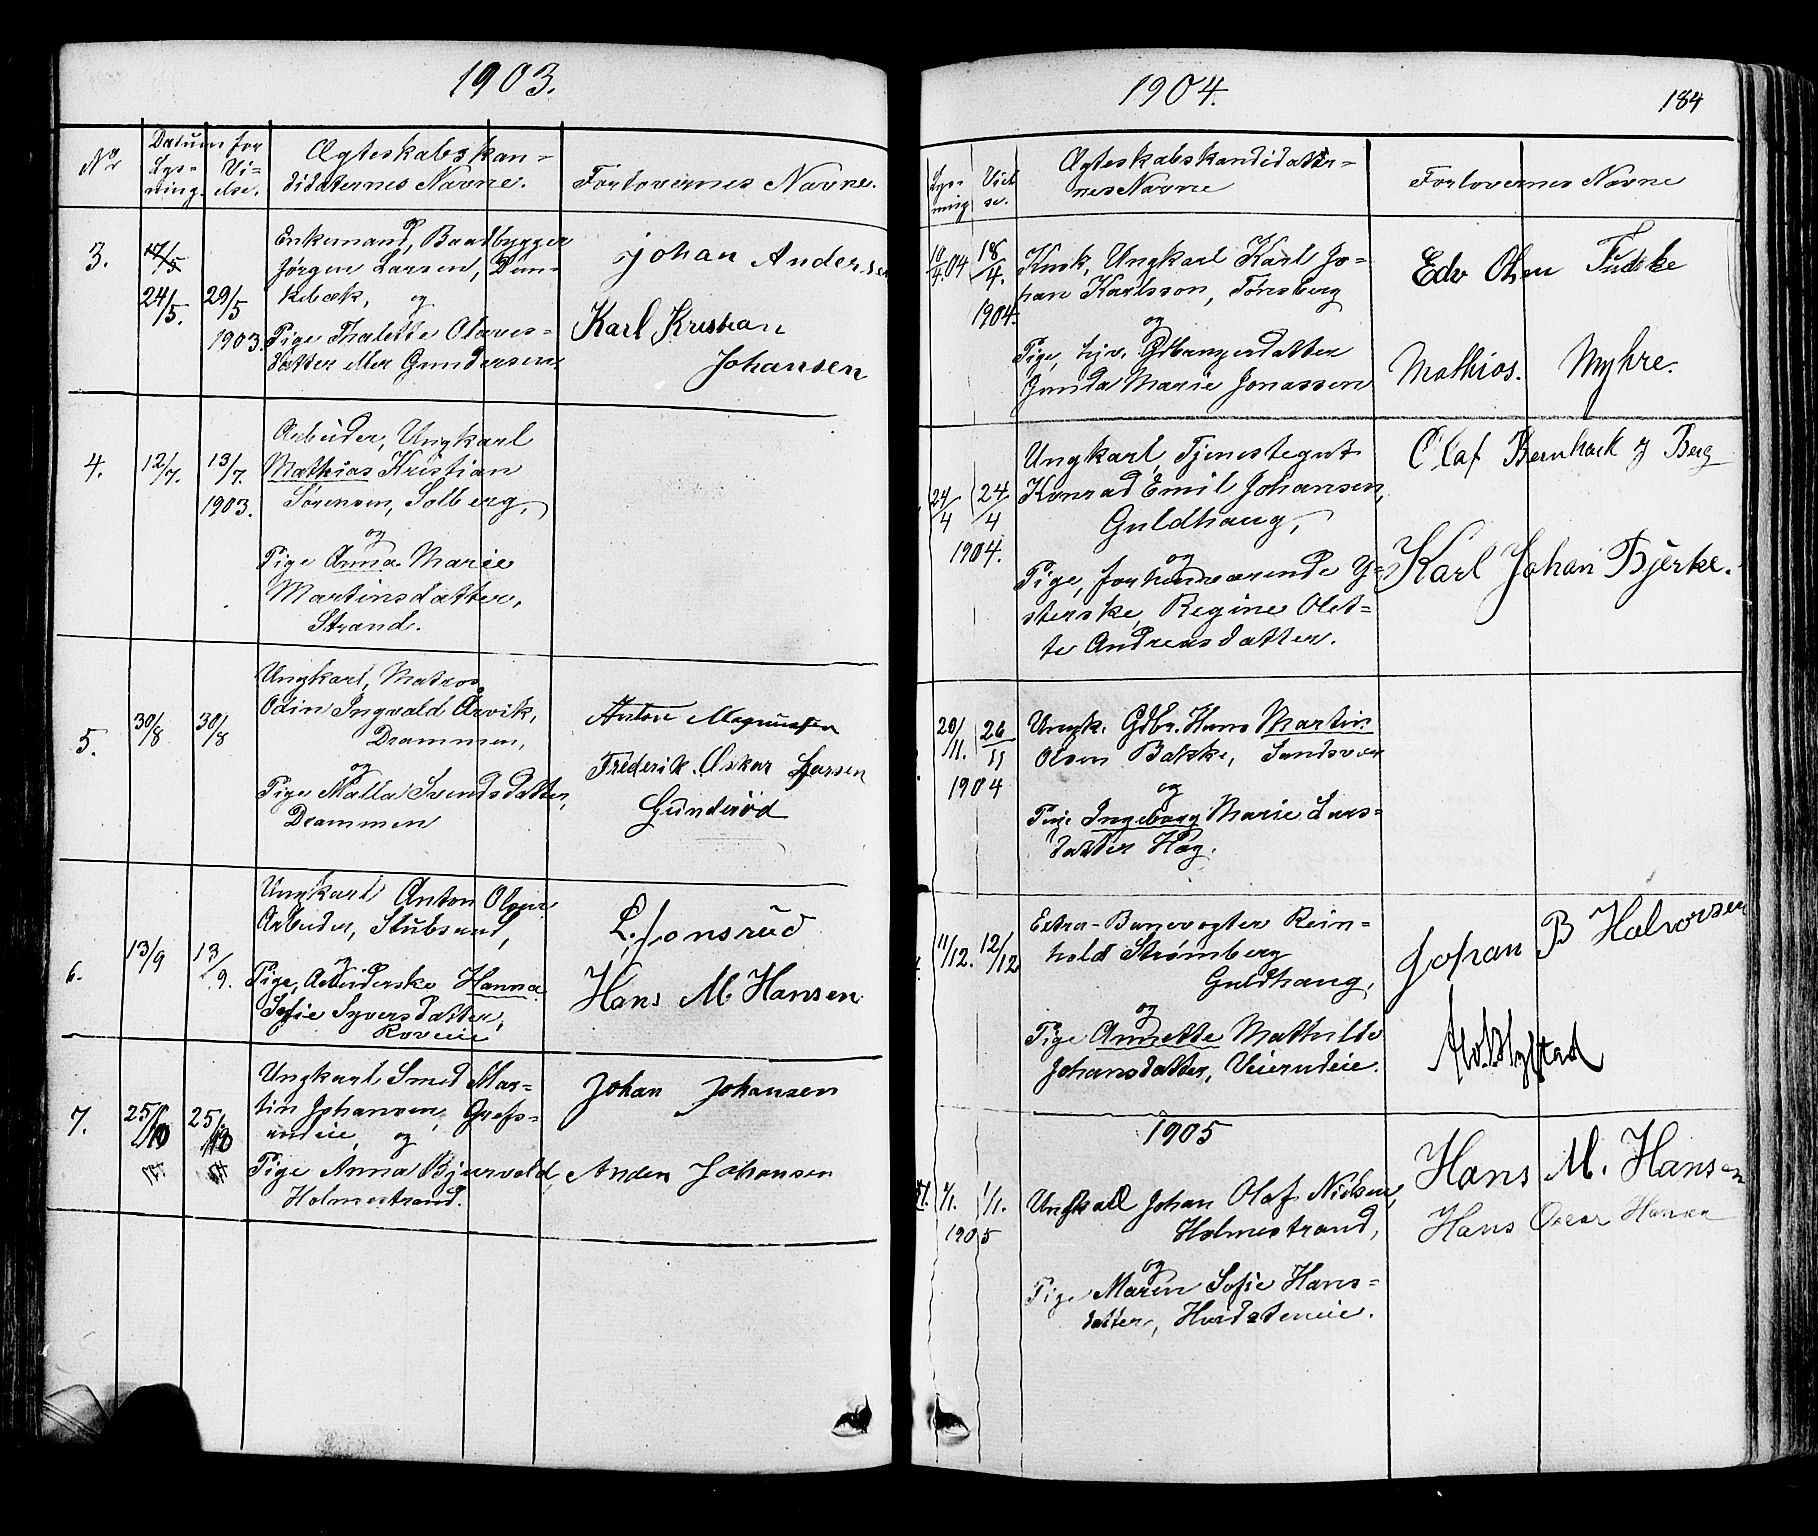 1903.
Nº
Datum for
Lys-
ning.
Vi-
else.
Ægteskabskan-
didaternes Navne.
Forlovernes Navne.
3.
17/5
24/5.
29/5
1903.
Enkemand, Baadbygger
Jørgen Larsen, Dun-
kebæk, og
Pige Thalette Olaves-
datter eller Gundersen.
Johan Andersen
Karl Kristian
Johansen
4.
12/7.
13/7.
1903.
Arbeider, Ungkarl
Mathias Kristian
Sørensen, Solberg,
og
Pige Anna Marie
Martinsdatter,
Strand.
5.
30/8
30/8
Ungkarl, Matros
Odin Ingvald Arvik,
Drammen,
og
Pige Malla Svendsdatter,
Drammen
Anton Magnussen
Frederik Oskar Larsen
Gunderød
6.
13/9
13/9.
Ungkarl Anton Olsen
Arbeider, Stubsrud,
og
Pige, Arbeiderske Hanna
Sofie Syversdatter,
Roveie
L. Jonsrud
Hans M Hansen
7.
25/10
25/10
Ungkarl Smed Mar-
tin Johansen, Grefs-
rudeie, og
Pige Anna Bjervold,
Holmestrand.
Johan Johansen
Anders Johansen
1904.
184
Lys-
ning
Viel
se.
Ægteskabskandidater-
nes Navne
Forlovernes Navne
10/4.04
18/4.
1904.
Kusk, Ungkarl Karl Jo-
han Karlsson, Tønsberg
og
Pige, hjv. Gbrugerdatter
Gunda Marie Jonassen
Edv Olsen
Mathias. Myhre.
24/4
24/4
1904.
Ungkarl, Tjenestegut
Konrad Emil Johansen,
Guldhaug,
og
Pige, forhenværende Y-
sterske, Regine Olet-
te Andreasdatter.
Olaf Bernhard Berg
Karl Johan Bjerke.
20/11.
26/11
1904
Ungk. Gdbr. Hans Martin
Olsen Bakke, Sandsvær
og
Pige Ingeborg Marie Lars-
datter Hag.
11/12.
12/12
Extra-Banevogter Rein-
hold Strømberg
Guldhaug,
og
Pige Annette Mathilde
Johansdatter, Veierudeie.
Johan B Halvorsen
1905
1/1.
1/1.
1905
Ungkarl Johan Olaf Nielsen,
Holmestrand,
og
Pige Maren Sofie Hans-
datter, Hvidsteneie.
Hans M. Hansen
Hans Oscar Hansen